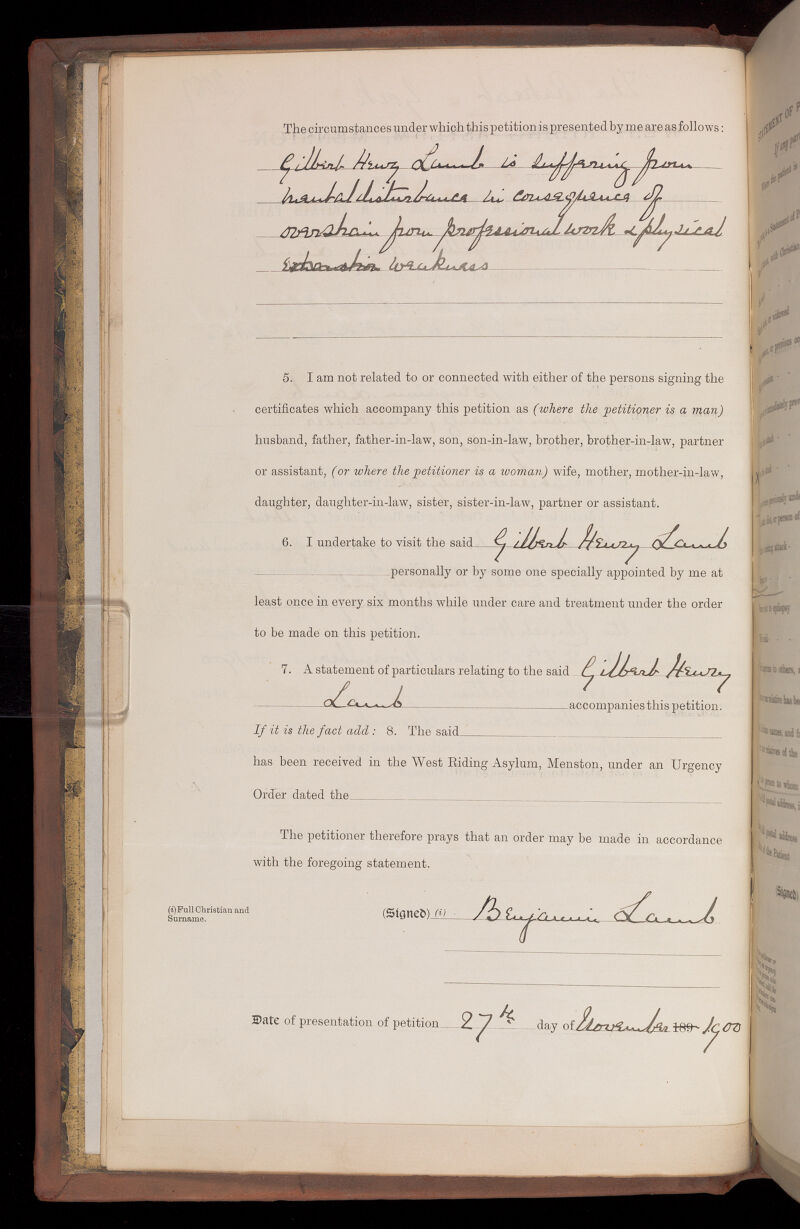 The circumstances under which this petition is presented by me are as follows:
Gilbert Henry Lamb is suffering from
mental disturbance in consequence of
overstrain from professional work & physical
exhaustion weakness
5. I am not related to or connected with either of the persons signing the
certificates which accompany this petition as (where the petitioner is a man)
husband, father, father-in-law, son, son-in-law, brother, brother-in-law, partner
or assistant, (or where the petitioner is a woman) wife, mother, mother-in-law,
daughter, daughter-in-law, sister, sister-in-law, partner or assistant.
6. I undertake to visit the said Gilbert Henry Lamb
personally or by some one specially appointed by me at
least once in every six months while under care and treatment under the order
to be made on this petition.
7. A statement of particulars relating to the said Gilbert Henry
Lamb accompanies this petition.
If it is the fact add: 8. The said
has been received in the West Riding Asylum, Menston, under an Urgency
Order dated the
The petitioner therefore prays that an order may be made in accordance
with the foregoing statement.
(i) Full Christian and
Surname.
(Signed) (i) Benjamin Lamb
Date of presentation of petition 27th day of November 189 1900
(Signed)